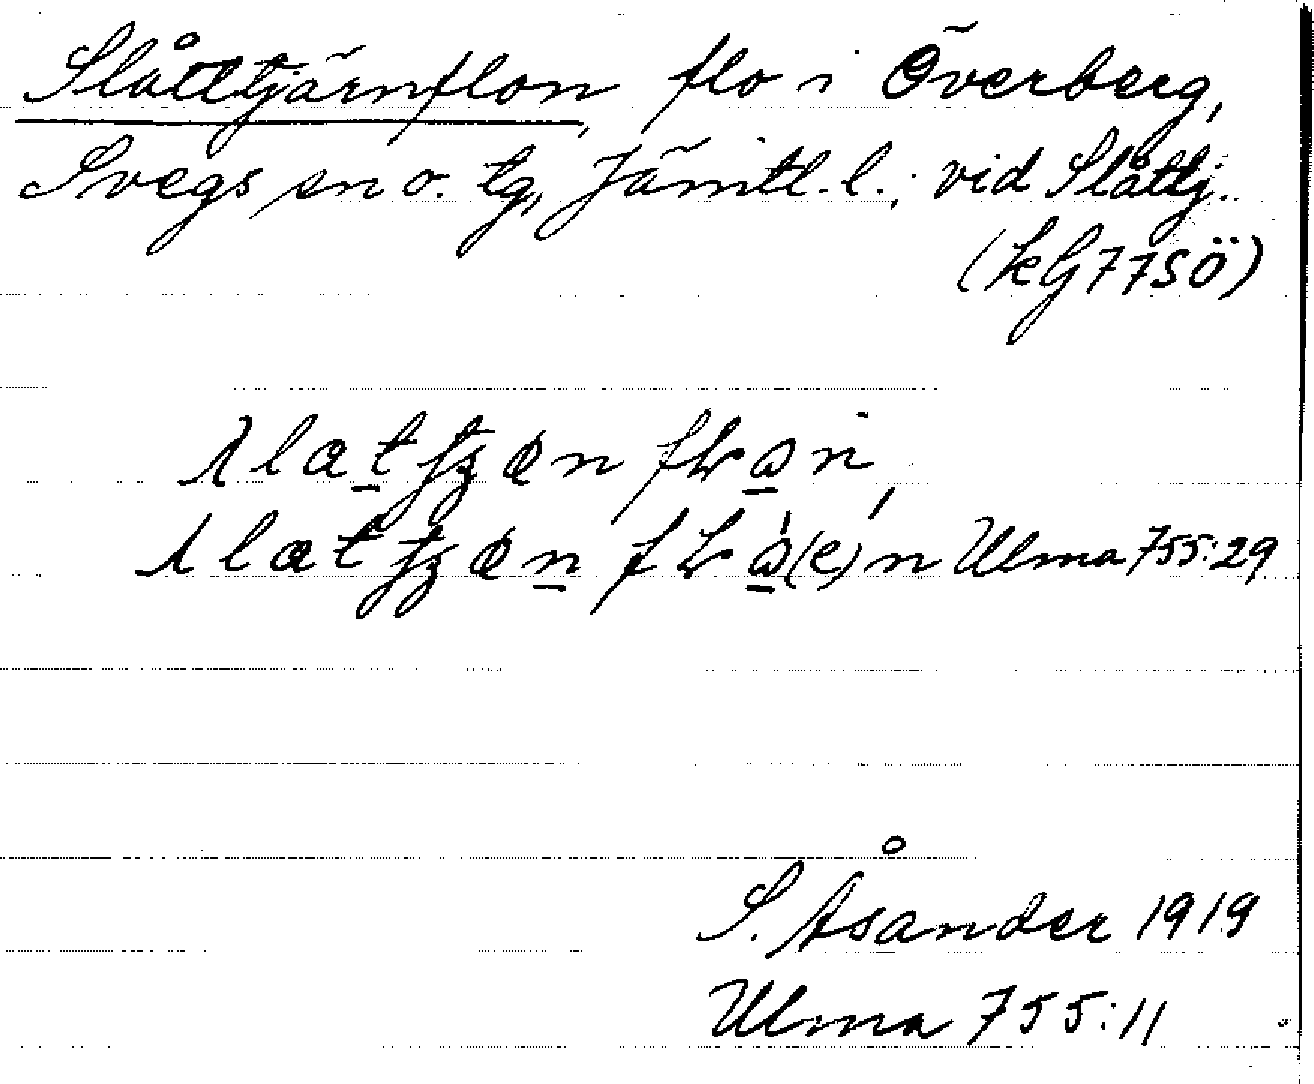 Slåttjärnflon, flo i Överberg,
Svegs sn o. tg, Jämtl. l.; vid Slåttj.
(kG 77SÖ)
Ulma 755:29
S. Åsander 1919
Ulma 755:11